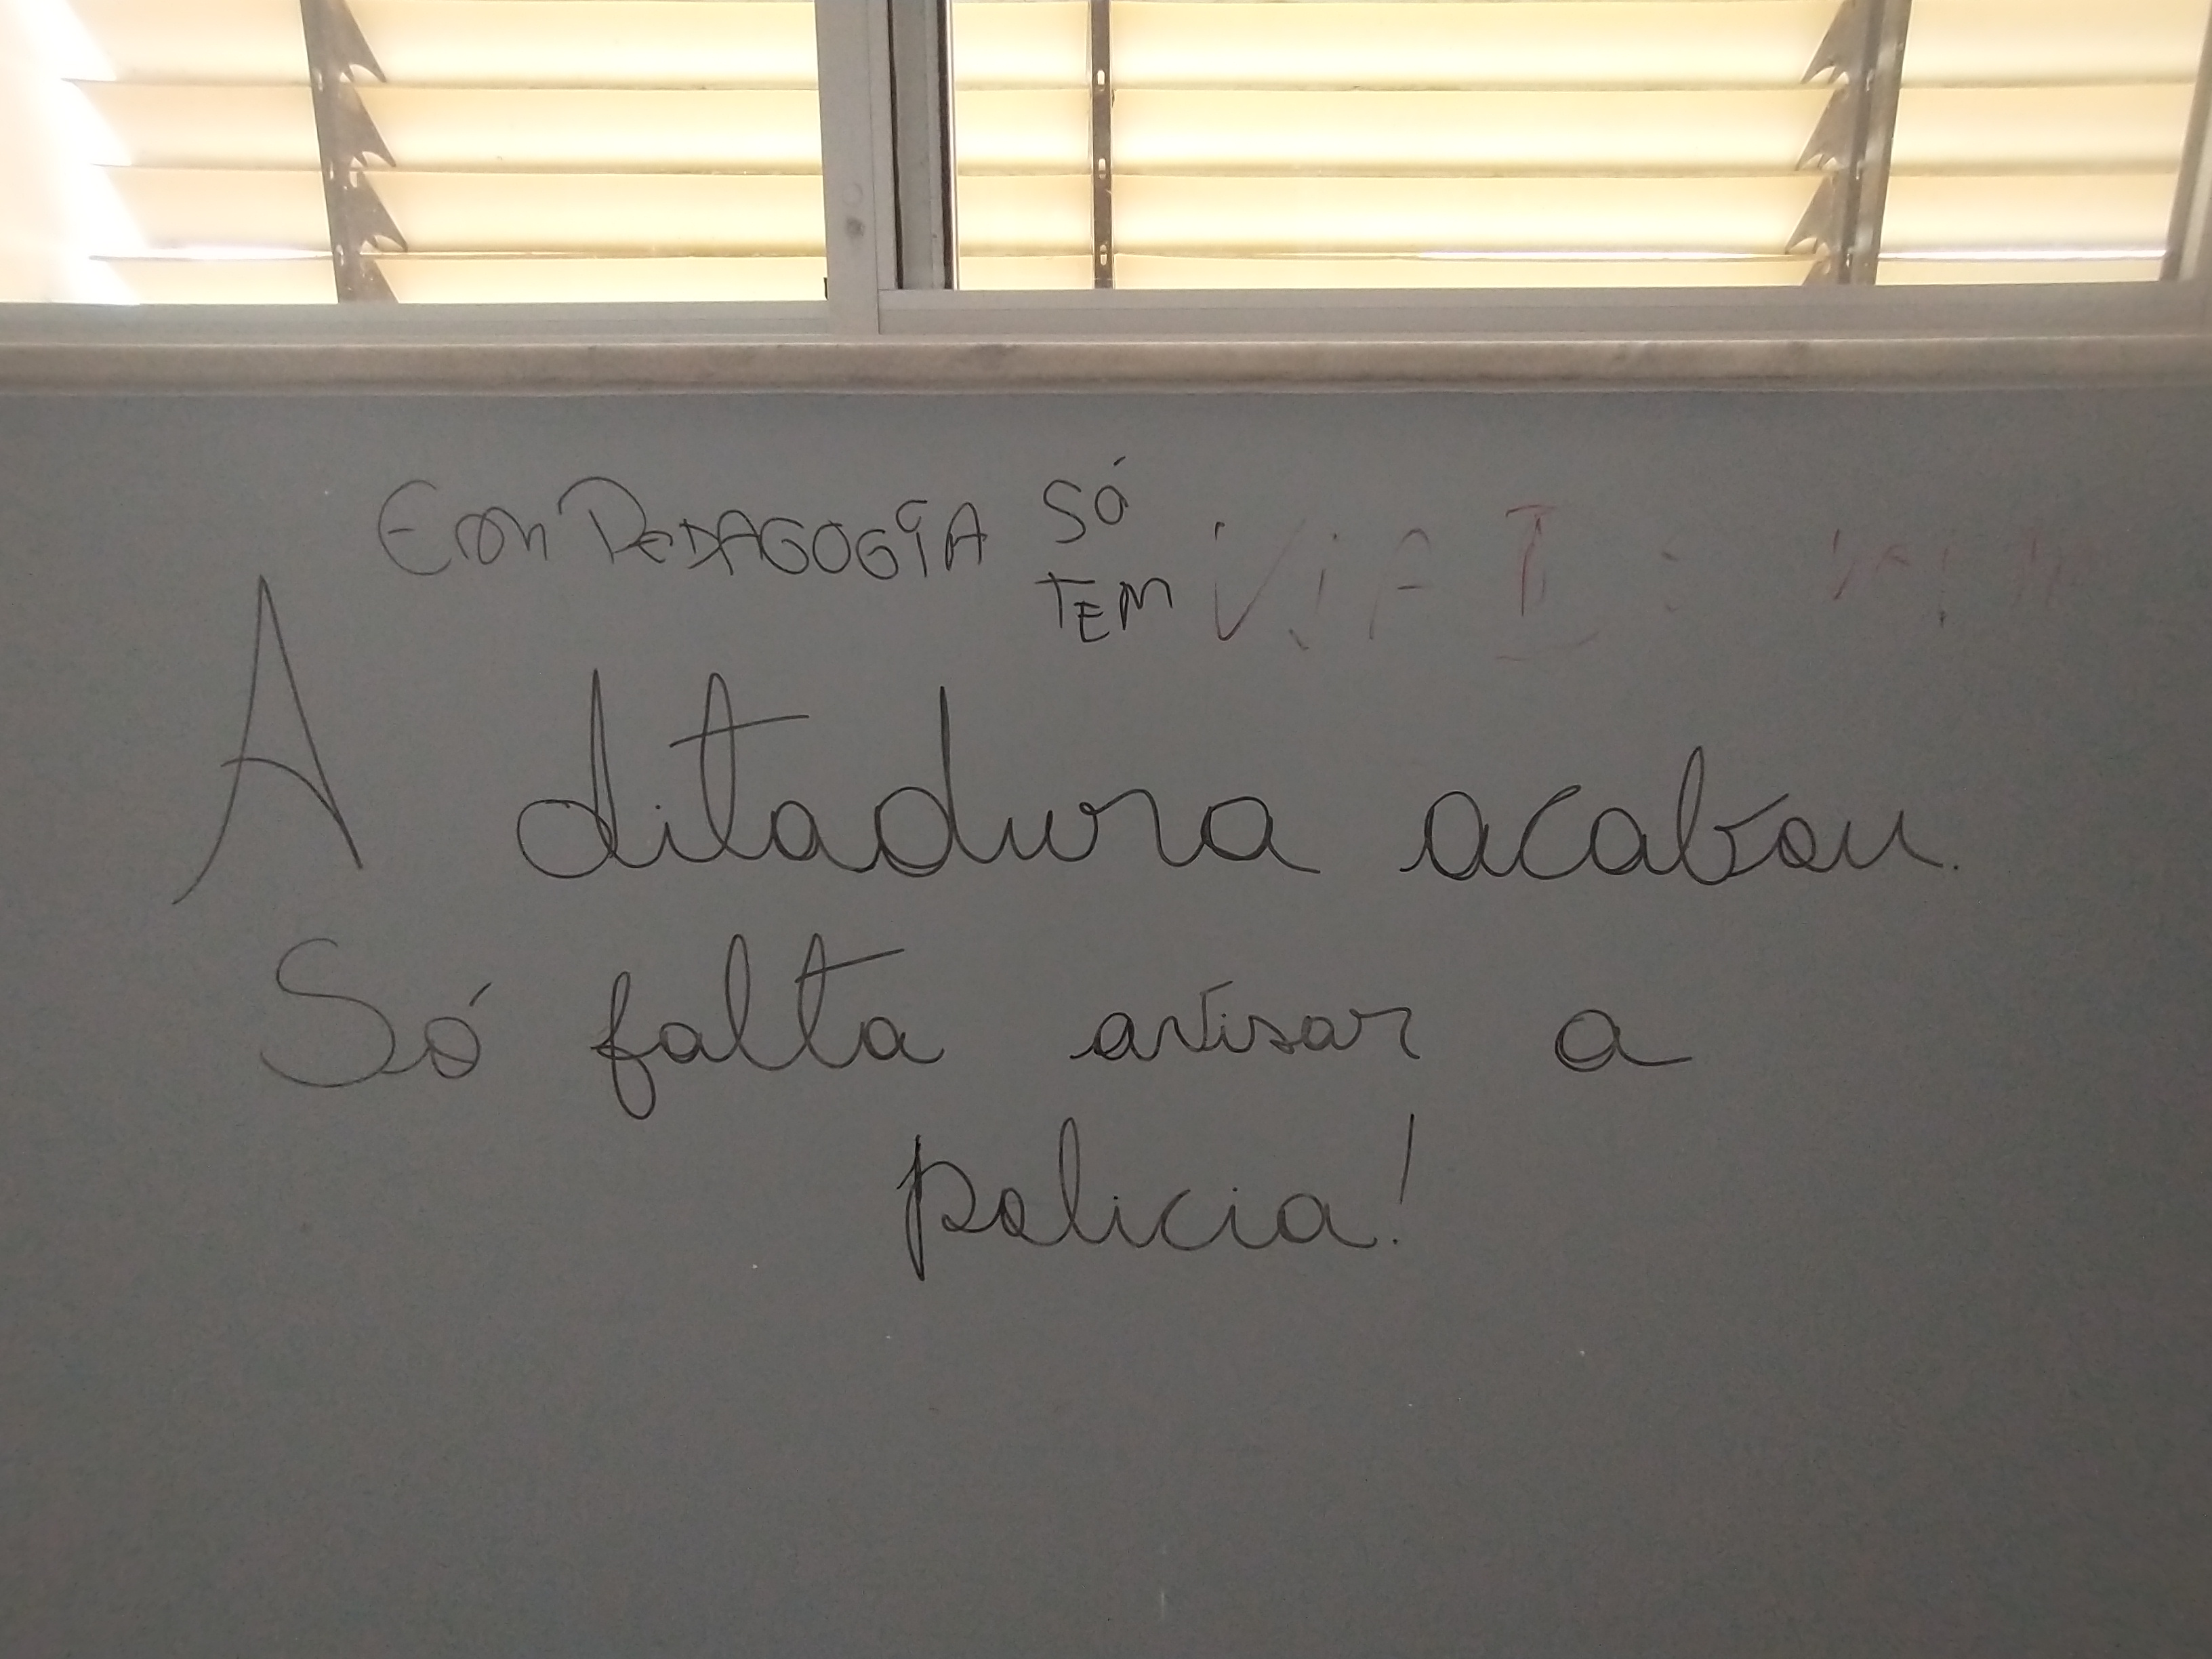 EM PEDAGOGIA SÓ
TEM
A ditadura acabou.
Só falta avisar a
policia!